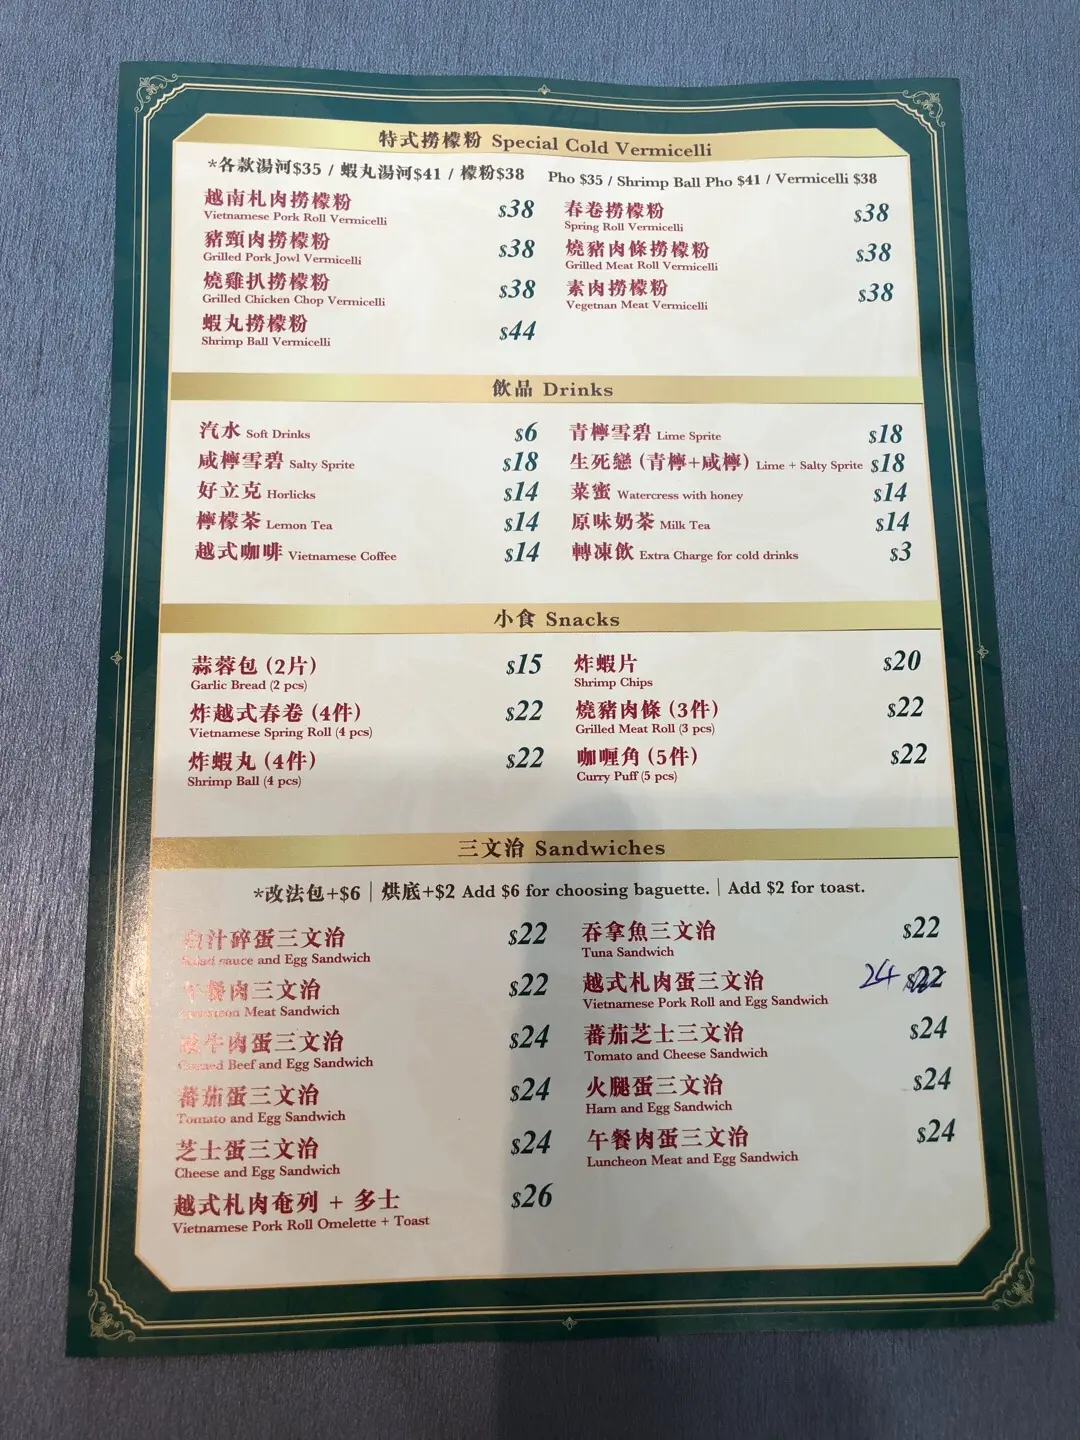 特式撈檬粉 Special Cold Vermicelli
*各款湯河$35 / 蝦丸湯河$41 / 檬粉$38 Pho $35 / Shrimp Ball Pho $41 / Vermicelli $38
越南札肉撈檬粉 $38
Vietnamese Pork Roll Vermicelli
豬頸肉撈檬粉 $38
Grilled Pork Jowl Vermicelli
燒雞扒撈檬粉 $38
Grilled Chicken Chop Vermicelli
蝦丸撈檬粉 $44
Shrimp Ball Vermicelli
春卷撈檬粉 $38
Spring Roll Vermicelli
燒豬肉條撈檬粉 $38
Grilled Meat Roll Vermicelli
素肉撈檬粉 $38
Vegetnan Meat Vermicelli
飲品 Drinks
汽水 Soft Drinks $6
咸檸雪碧 Salty Sprite $18
好立克 Horlicks $14
檸檬茶 Lemon Tea $14
越式咖啡 Vietnamese Coffee $14
青檸雪碧 Lime Sprite $18
生死戀 (青檸+咸檸) Lime + Salty Sprite $18
菜蜜 Watercress with honey $14
原味奶茶 Milk Tea $14
轉凍飲 Extra Charge for cold drinks $3
小食 Snacks
蒜蓉包 (2片) $15
Garlic Bread (2 pcs)
炸越式春卷 (4件) $22
Vietnamese Spring Roll (4 pcs)
炸蝦丸 (4件) $22
Shrimp Ball (4 pcs)
炸蝦片 $20
Shrimp Chips
燒豬肉條 (3件) $22
Grilled Meat Roll (3 pcs)
咖喱角 (5件) $22
Curry Puff (5 pcs)
三文治 Sandwiches
*改法包+$6 | 烘底+$2 Add $6 for choosing baguette. | Add $2 for toast.
白汁碎蛋三文治 $22
Salad sauce and Egg Sandwich
午餐肉三文治 $22
Luncheon Meat Sandwich
鹹牛肉蛋三文治 $24
Corned Beef and Egg Sandwich
蕃茄蛋三文治 $24
Tomato and Egg Sandwich
芝士蛋三文治 $24
Cheese and Egg Sandwich
越式札肉奄列 + 多士 $26
Vietnamese Pork Roll Omelette + Toast
吞拿魚三文治 $22
Tuna Sandwich
越式札肉蛋三文治 24 $22
Vietnamese Pork Roll and Egg Sandwich
蕃茄芝士三文治 $24
Tomato and Cheese Sandwich
火腿蛋三文治 $24
Ham and Egg Sandwich
午餐肉蛋三文治 $24
Luncheon Meat and Egg Sandwich